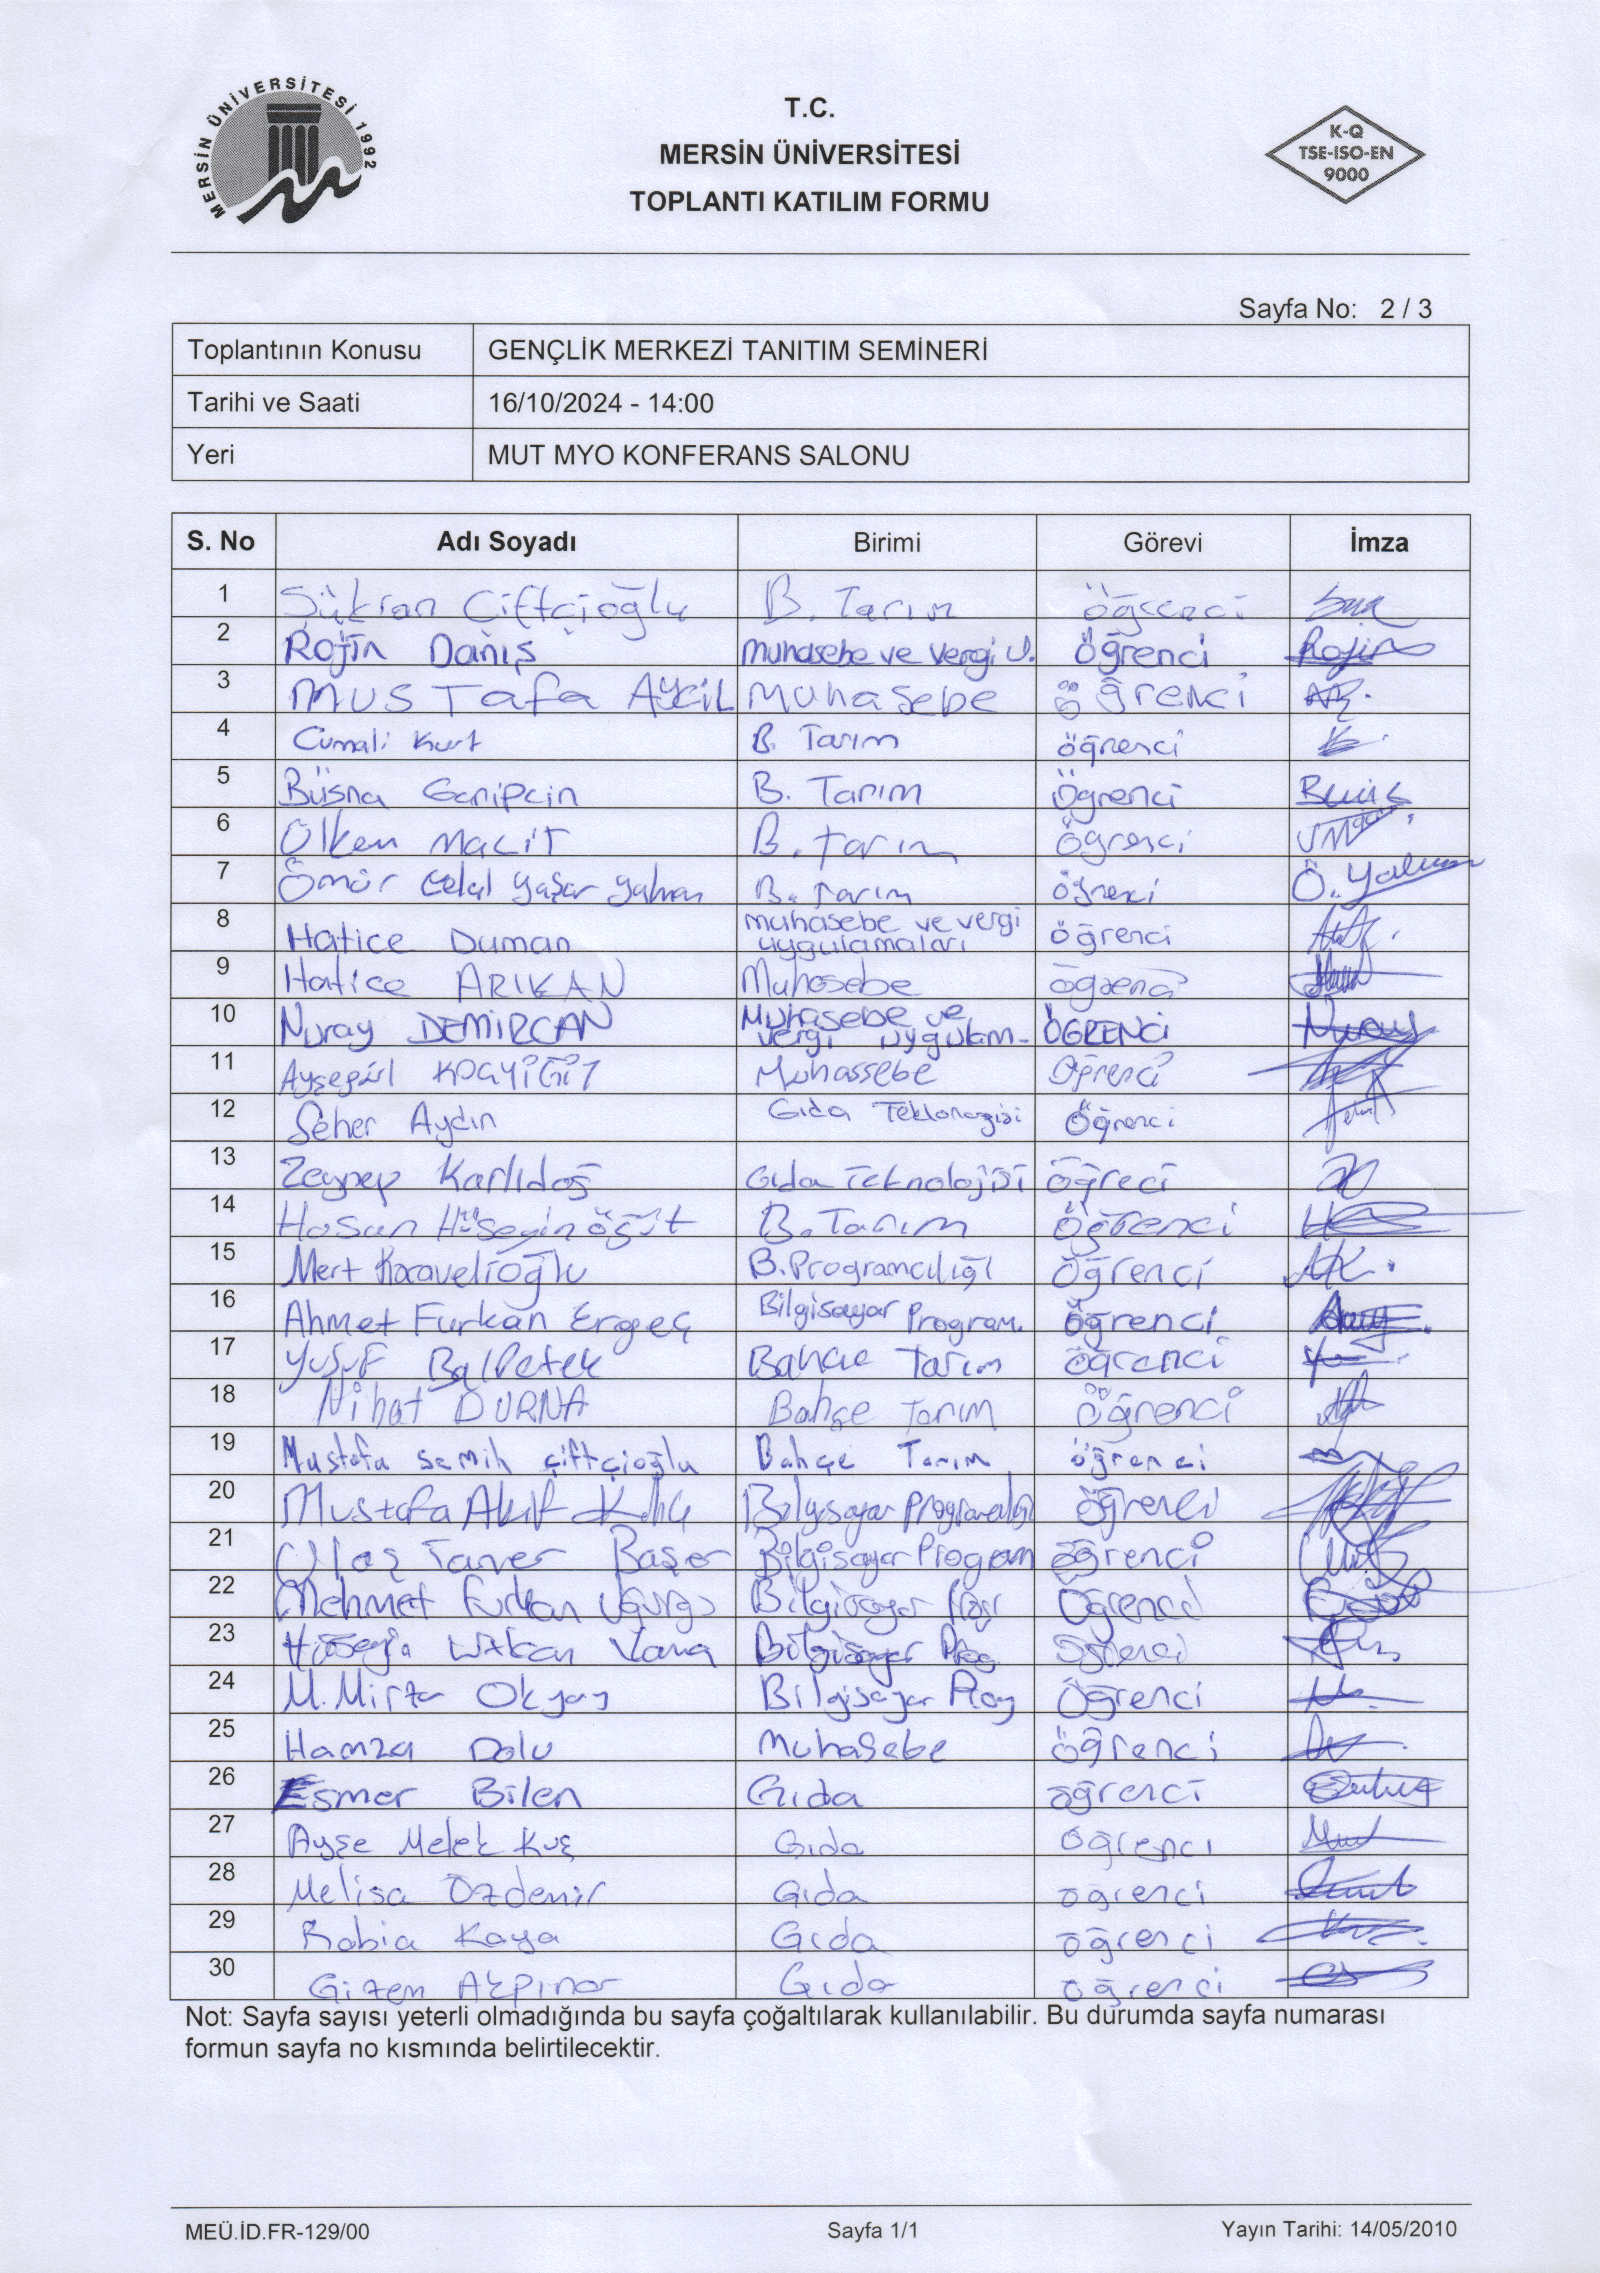 MERSİN ÜNİVERSİTESİ 1992
T.C.
MERSİN ÜNİVERSİTESİ
TOPLANTI KATILIM FORMU
K-Q
TSE-ISO-EN
9000
Sayfa No: 2 / 3
Toplantının Konusu GENÇLİK MERKEZİ TANITIM SEMİNERİ
Tarihi ve Saati 16/10/2024 - 14:00
Yeri MUT MYO KONFERANS SALONU
S. No Adı Soyadı Birimi Görevi İmza
1 Şükran Çiftçioğlu B. Tarım öğrenci
2 Rojin Danış Muhasebe ve Vergi U. Öğrenci Rojin
3 Mustafa Muhasebe öğrenci
4 Cumali Kurt B. Tarım öğrenci
5 Büşna Garipcin B. Tarım Öğrenci
6 Ülken Macit B. Tarım Öğrenci
7 Ömür Celal Yaşar Yalman B. Tarım öğrenci Ö. Yalman
8 Hatice Duman muhasebe ve vergi uygulamaları öğrenci
9 Hatice ARIKAN Muhasebe öğrenci
10 Nuray DEMİRCAN Muhasebe ve vergi uygulam- ÖĞRENCİ Nuray
11 Ayşegül Muhassebe Öğrenci
12 Seher Aydın Gıda Öğrenci
13 Zeynep Karlıdağ Gıda Teknolojisi öğreci
14 Hasan Hüseyin Öğüt B. Tarım Öğrenci
15 Mert Karavelioğlu B. Programcılığı Öğrenci
16 Ahmet Furkan Ergeç Bilgisayar Program. öğrenci
17 Yusuf Balpetek Bahçe Tarım öğrenci
18 Nihat DURNA Bahçe Tarım Öğrenci
19 Mustafa Semih Çiftçioğlu Bahçe Tarım öğrenci
20 Mustafa Akif Kılıç Bilgisayar Programcılığı öğrenci
21 Taner Başer Bilgisayar Program öğrenci
22 Mehmet Furkan Bilgisayar Öğrenci
23 Hüseyin Bilgisayar Prog Öğrenci
24 M. Mirza Okyay Bilgisayar Prog Öğrenci
25 Hamza Dolu Muhasebe öğrenci
26 Esmer Bilen Gıda öğrenci
27 Ayşe Melek Kuş Gıda öğrenci
28 Melisa Özdemir Gıda öğrenci
29 Rabia Kaya Gıda öğrenci
30 Gizem Akpınar Gıda öğrenci
Not: Sayfa sayısı yeterli olmadığında bu sayfa çoğaltılarak kullanılabilir. Bu durumda sayfa numarası
formun sayfa no kısmında belirtilecektir.
MEÜ.İD.FR-129/00 Sayfa 1/1 Yayın Tarihi: 14/05/2010